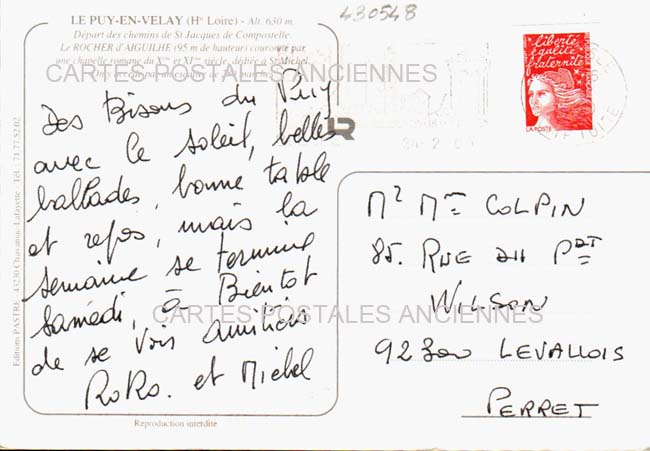 430548
LE PUY-EN-VELAY (Hte Loire) - Alt. 630 m.
Départ des chemins de St Jacques de Compostelle.
Le ROCHER d'AIGUILHE (95 m de hauteur) couronné par
une chapelle romane du Xe et XIe siècle, dédiée à St Michel.
CARTES POSTALES ANCIENNES
Des Bisous du Puy
avec le soleil, belles
ballades, bonne table
et repos, mais la
semaine se termine
samedi, à Bientot
de se voir amitiés
RoRo. et Michel
Reproduction interdite
Editions PASTRE - 43230 Chavaniac-Lafayette - Tél. : 71.77.52.02
liberté
égalité
fraternité
LA POSTE
Mr Mme COLPIN
85. RUE du Pdt
WILSON
CARTES POSTALES ANCIENNES
92300 LEVALLOIS
PERRET